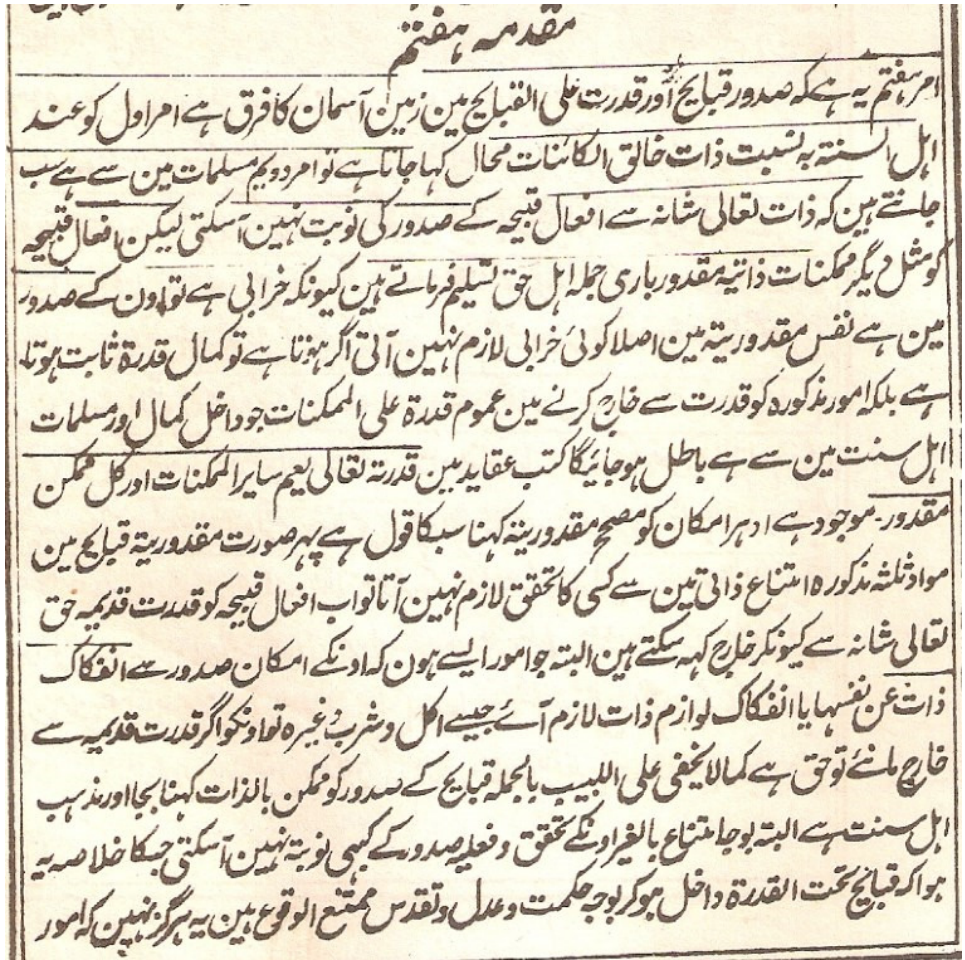 مقدمہ ہفتم
امر ہفتم یہ ہے کہ صدور قبایح اور قدرت علی القبایح مین زمین آسمان کا فرق ہے امر اول کو عند
اہل السنۃ بہ نسبت ذات خالق الکائنات محال کہا جاتا ہے تو امر دویم مسلمات مین سے ہے سب
جانتے ہین کہ ذات تعالی شانہ سے افعال قبیحہ کے صدور کی نوبت نہین آسکتی لیکن افعال قبیحہ
کو مثل دیگر ممکنات ذاتیہ مقدور باری جملہ اہل حق تسلیم فرماتے ہین کیونکہ خرابی ہے تو اون کے صدور
مین ہے نفس مقدوریۃ مین اصلا کوئی خرابی لازم نہین آتی اگر ہوتا ہے تو کمال قدرۃ ثابت ہوتا
ہے بلکہ امور مذکورہ کو قدرت سے خارج کرنے مین عموم قدرۃ علی الممکنات جو داخل کمال اور مسلمات
اہل سنت مین سے ہے باطل ہو جائیگا کتب عقاید مین قدرتہ تعالی یعم سایر الممکنات اور کل ممکن
مقدور موجود ہے ادہر امکان کو مصحح مقدوریۃ کہنا سبکا قول ہے پہر صورت مقدوریۃ قبایح مین
مواد ثلثہ مذکورہ امتناع ذاتی مین سے کسی کا تحقق لازم نہین آتا تو اب افعال قبیحہ کو قدرت قدیمہ حق
تعالی شانہ سے کیونکر خارج کہہ سکتے ہین البتہ جو امور ایسے ہون کہ اونکے امکان صدور سے انفکاک
ذات عن نفسہا یا انفکاک لوازم ذات لازم آئے جیسے اکل و شرب وغیرہ تو اونکو اگر قدرت قدیمہ سے
خارج مانئے تو حق ہے کمالا یخفی علی اللبیب بالجملہ قبایح کے صدور کو ممکن بالذات کہنا بجا اور مذہب
اہل سنت ہے البتہ بوجہ امتناع بالغیر اونکے تحقق و فعلیہ صدور کے کبھی نوبۃ نہین آسکتی جسکا خلاصہ یہ
ہوا کہ قبایح تحت القدرۃ داخل ہو کر بوجہ حکمت و عدل و تقدس ممتنع الوقوع ہین یہ ہرگز نہین کہ امور